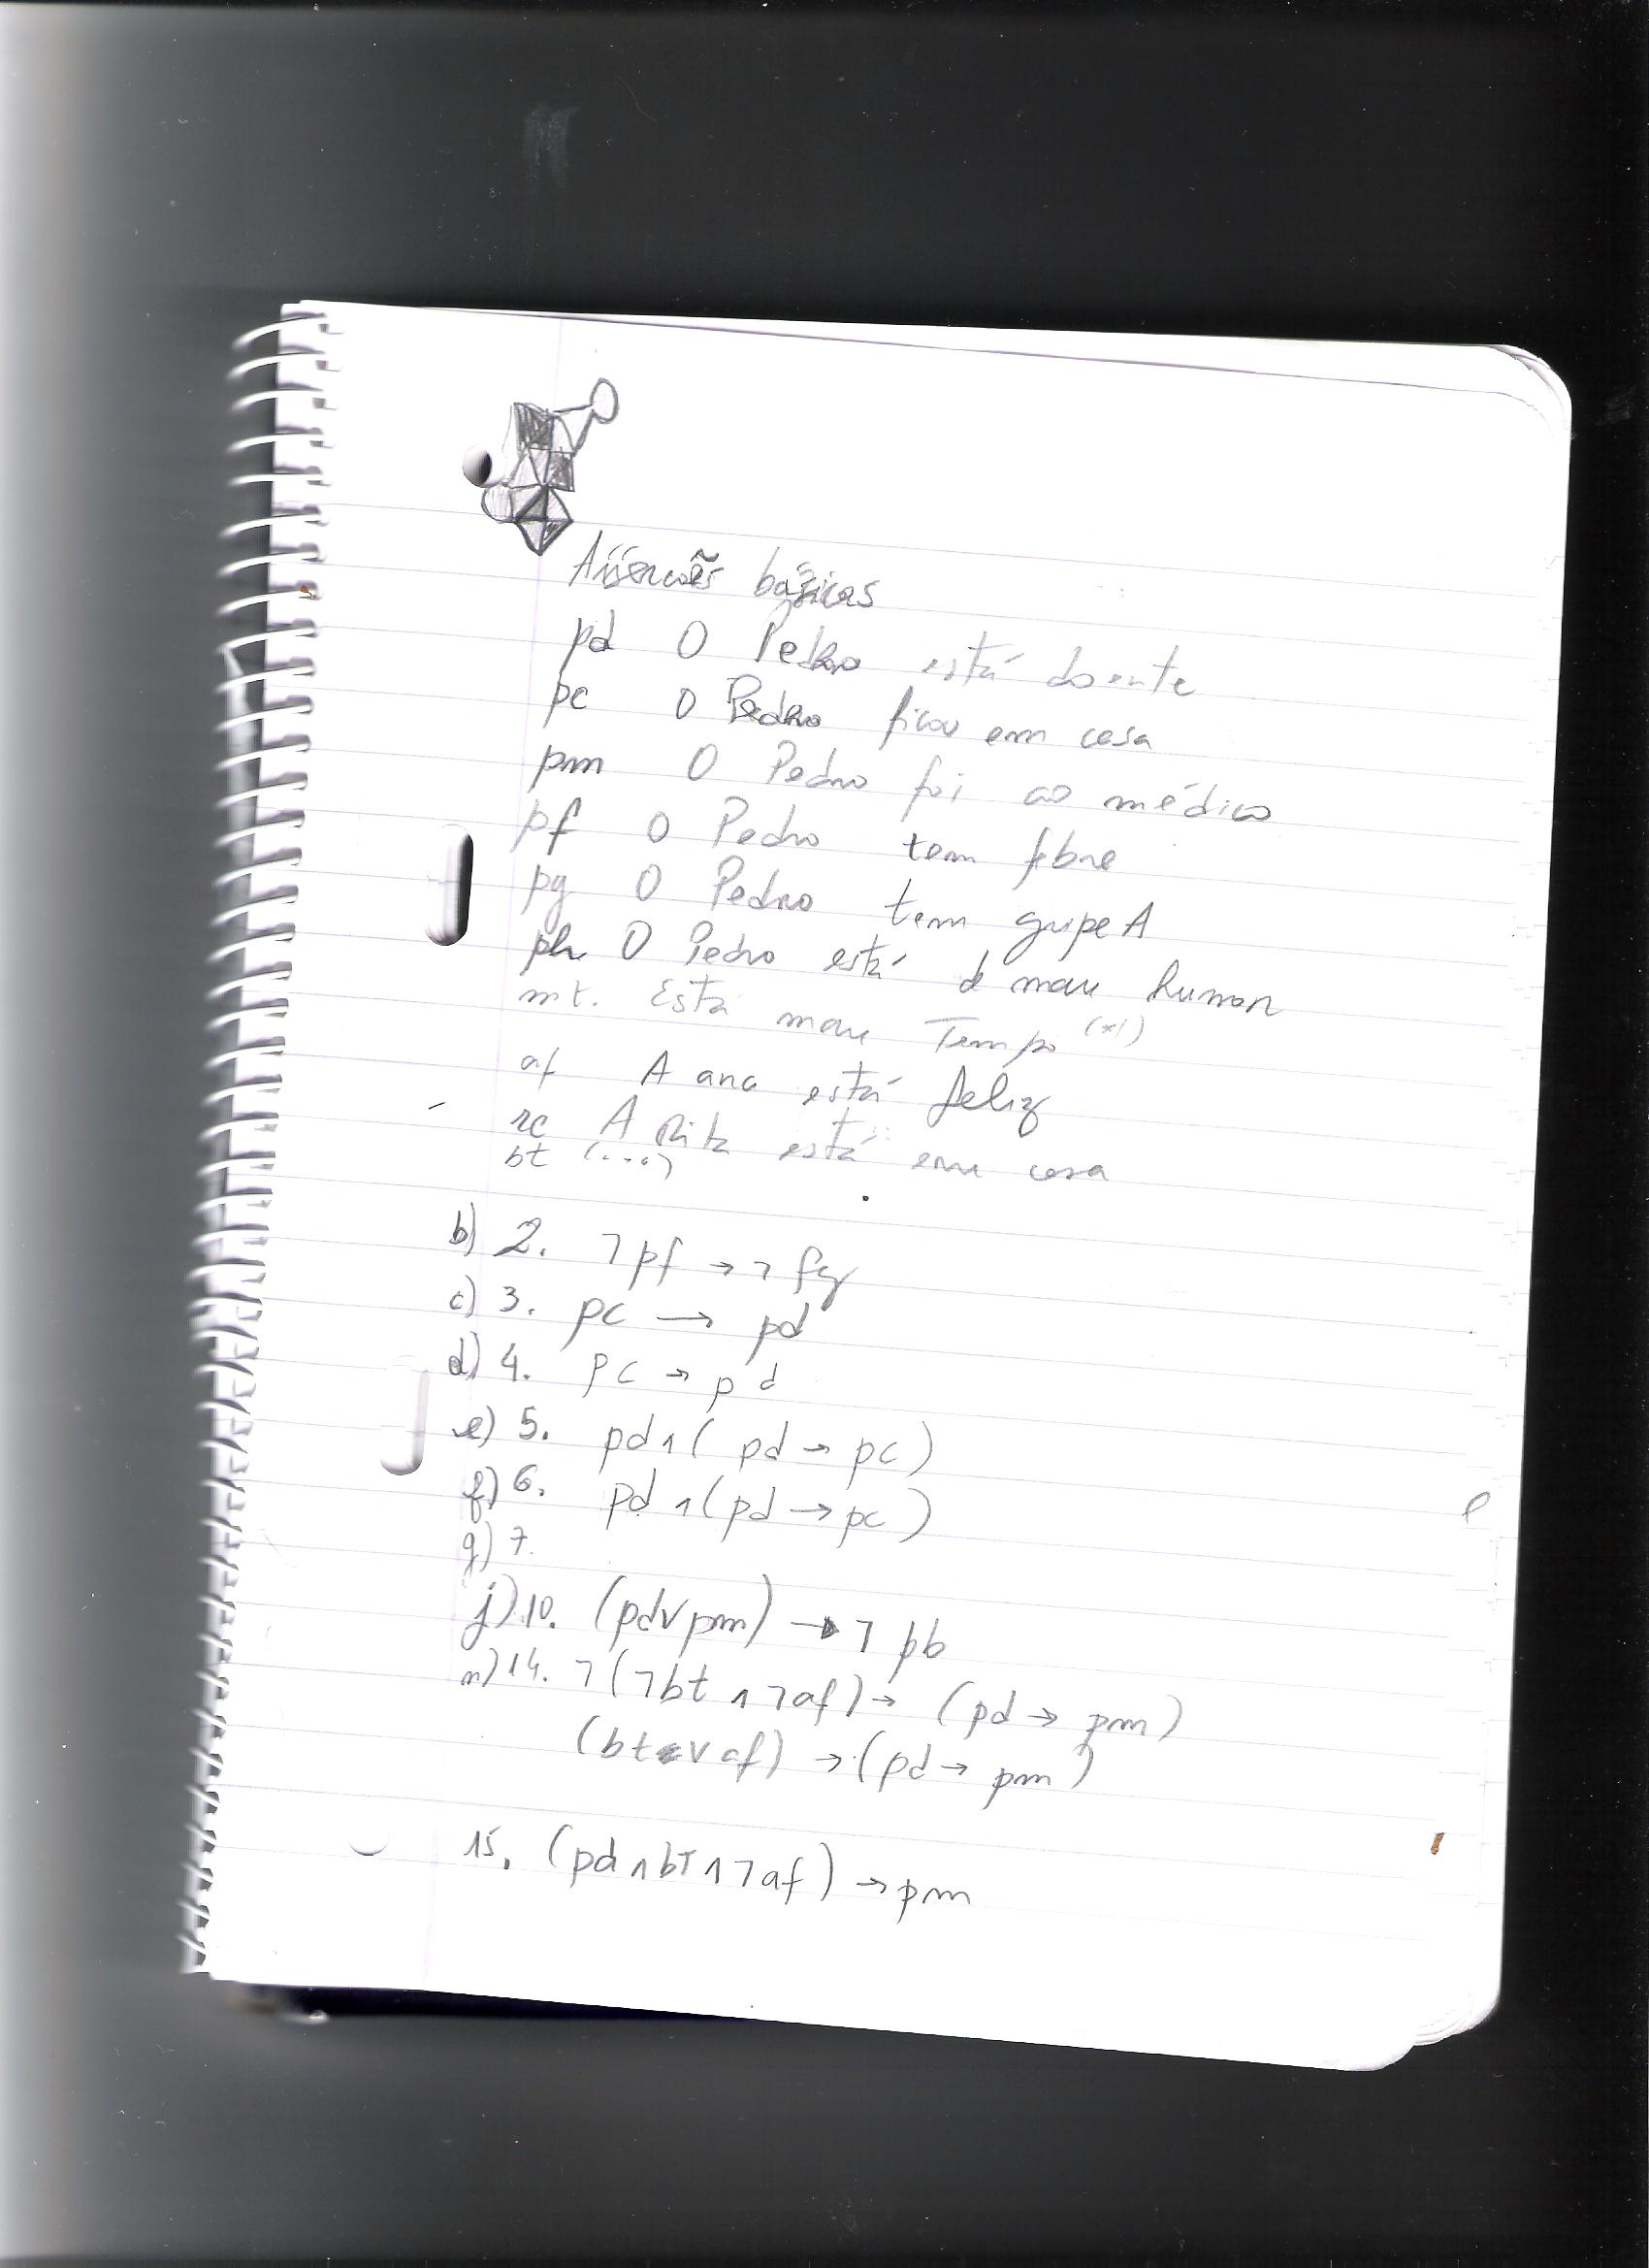 Asserções básicas
pd O Pedro está doente
pc O Pedro ficou em casa
pm O Pedro foi ao médico
pf O Pedro tem febre
pg O Pedro tem gripe A
ph O Pedro está d mau humor
mt. Está mau Tempo (*1)
af A ana está feliz
rc A Rita está em casa
bt (...)
b) 2. ¬pf → ¬fg
c) 3. pc → pd
d) 4. pc → pd
e) 5. pd ∧ (pd → pc)
f) 6. pd ∧ (pd → pc)
g) 7.
j) 10. (pd ∨ pm) → ¬ pb
n) 14. ¬(¬bt ∧ ¬af) → (pd → pm)
(bt ∨ af) → (pd → pm)
15. (pd ∧ bt ∧ ¬af) → pm